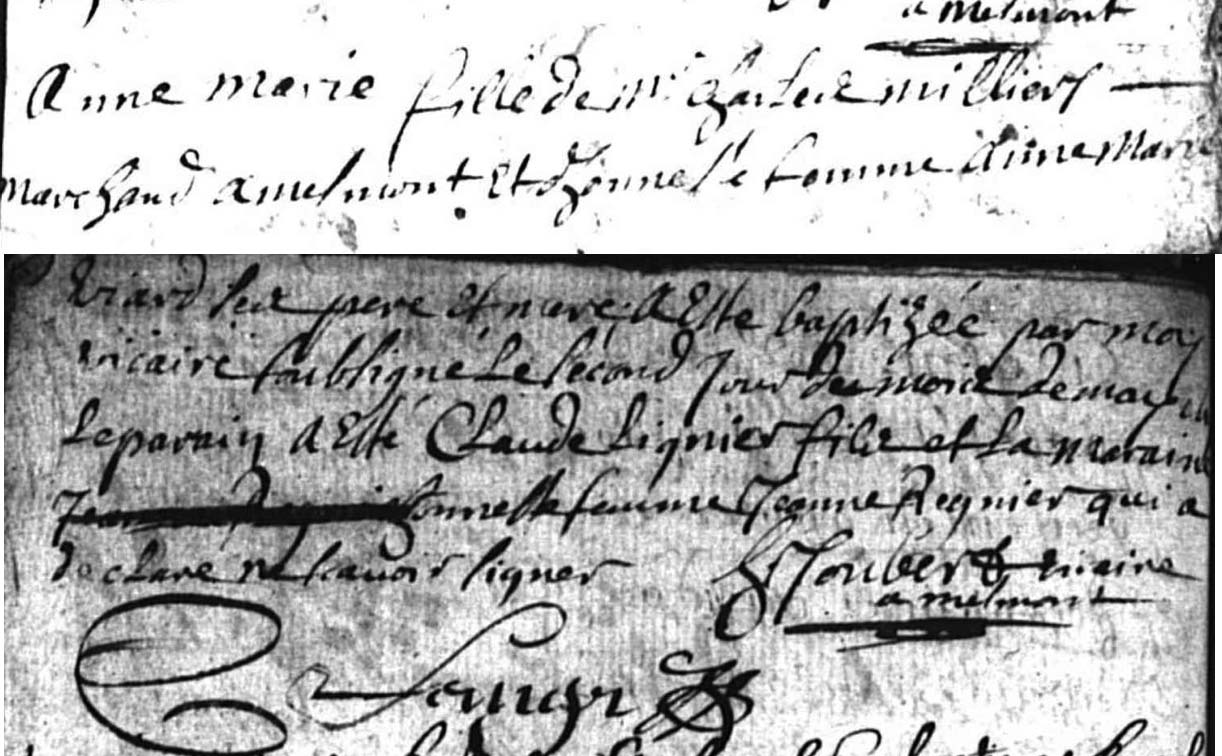 a melmont
Anne Marie fille de Mr Charles milliers
Marchand a melmont Et d'honneste femme Anne Marie
viard ses pere et mere, a Este baptizée par moy
vicaire soubsigné le second jour du mois de may
le parain a Esté Claude Lignier fils et la maraine
honneste femme Jeanne Regnier qui a
declaré ne scavoir signer Joubert vicaire
a melmont